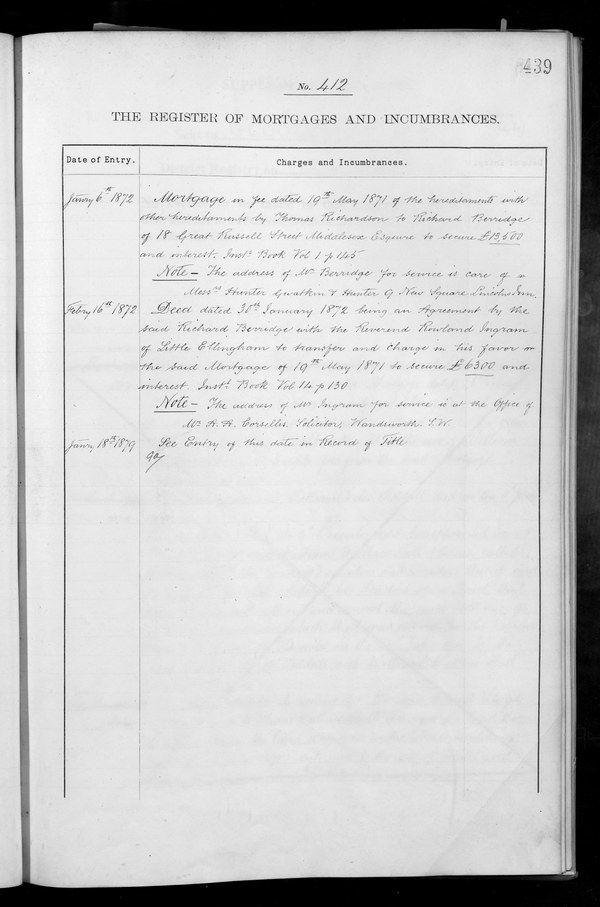 439
No. 412
THE REGISTER OF MORTGAGES AND INCUMBRANCES.
Date of Entry.
Charges and Incumbrances.
Janry 6th 1872 Mortgage in fee dated 19th May 1871 of the hereditaments with
other hereditaments by Thomas Richardson to Richard Berridge
of 18 Great Russell Street Middlesex Esquire to secure £13,500
and interest. Inst. Book Vol 1 p 145
Note – The address of Mr Berridge for service is care of
Messrs Hunter Gwatkin & Hunter 9 New Square Lincolns Inn.
Febry 16th 1872 Deed dated 30th January 1872 being an Agreement by the
said Richard Berridge with the Reverend Rowland Ingram
of Little Ellingham to transfer and charge in his favor
the said Mortgage of 19th May 1871 to secure £6300 and
interest. Inst. Book Vol 14 p 130
Note – The address of Mr Ingram for service is at the Office of
Mr A. A. Corsellis. Solicitor, Wandsworth. S.W.
Janry 18th 1879 See Entry of this date in Record of Title